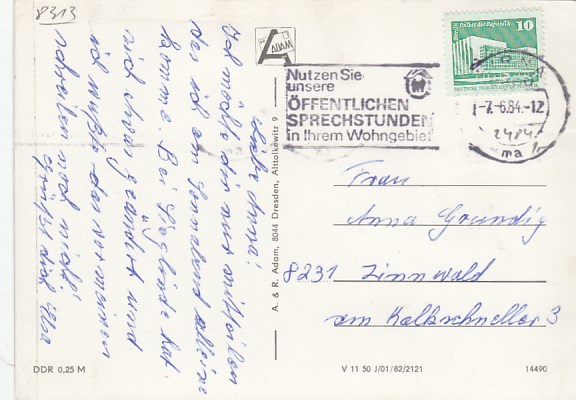 8313
Liebe Anna!
Ich möchte dir nur mitteilen
das ich am Sonnabend alleine
komme. Bei Sieglinde hat
sich etwas geändert und
ich wußte das vor meinen
schreiben noch nicht.
Es grüßt dich Elsa
A. & R. Adam, 8044 Dresden, Alttolkewitz 9
Berlin Palast der Republik
10
Nutzen Sie
unsere
ÖFFENTLICHEN
SPRECHSTUNDEN
in Ihrem Wohngebiet
-7.-6.84.-12
ma
Frau
Anna Grundig
8231 Zinnwald
am Kalkschneller 3
DDR 0,25 M
V 11 50 J/01/82/2121
14490